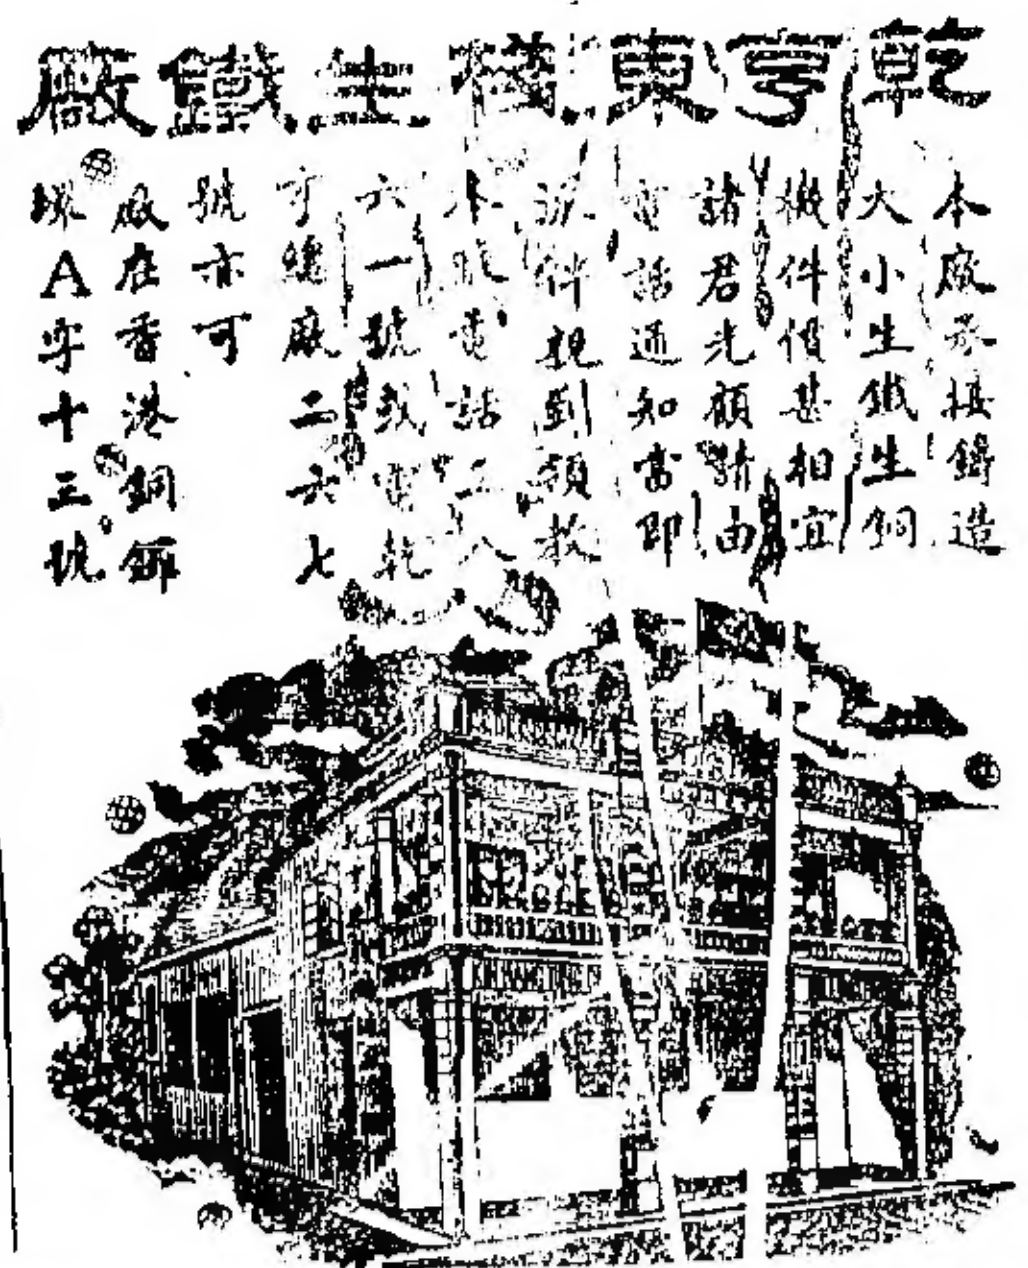 乾亨東棧生鐵廠
本廠承接鑄造
大小生鐵生銅
機件價甚相宜
諸君光顧請由
電話通知當即
派伴親到領教
本棧電話五八
六一號或電乾
亨總廠二六七
號亦可
廠在香港銅鑼
環A字十三號